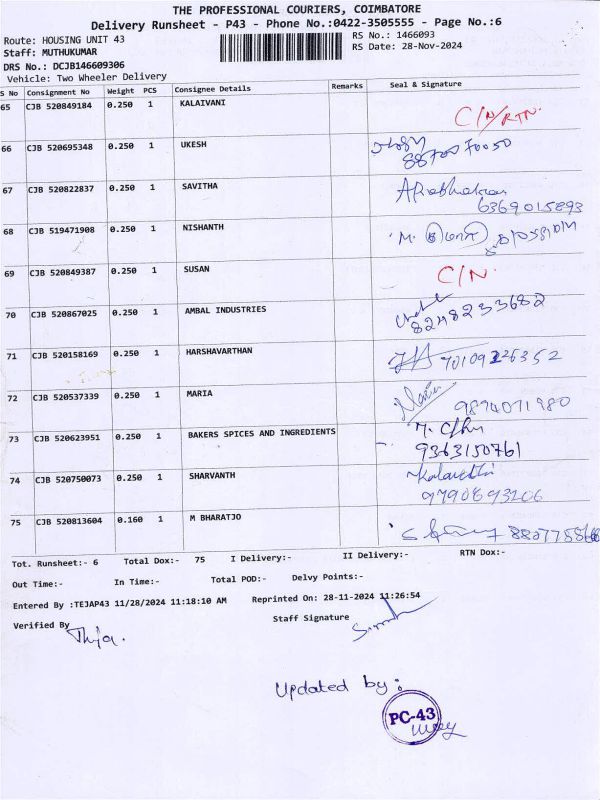 THE PROFESSIONAL COURIERS, COIMBATORE
Delivery Runsheet - P43 - Phone No.:0422-3505555 - Page No.:6
Route: HOUSING UNIT 43 RS No.: 1466093
Staff: MUTHUKUMAR RS Date: 28-Nov-2024
DRS No.: DCJB146609306
Vehicle: Two Wheeler Delivery
S No Consignment No Weight PCS Consignee Details Remarks Seal & Signature
65 CJB 520849184 0.250 1 KALAIVANI C/N/RTN.
66 CJB 520695348 0.250 1 UKESH
67 CJB 520822837 0.250 1 SAVITHA
6369015893
68 CJB 519471908 0.250 1 NISHANTH M.
69 CJB 520849387 0.250 1 SUSAN C/N.
70 CJB 520867025 0.250 1 AMBAL INDUSTRIES
8248233682
71 CJB 520158169 0.250 1 HARSHAVARTHAN
72 CJB 520537339 0.250 1 MARIA Maria
9894071980
73 CJB 520623951 0.250 1 BAKERS SPICES AND INGREDIENTS
9363150761
74 CJB 520750073 0.250 1 SHARVANTH
75 CJB 520813604 0.160 1 M BHARATJO
Tot. Runsheet:- 6 Total Dox:- 75 I Delivery:- II Delivery:- RTN Dox:-
Out Time:- In Time:- Total POD:- Delvy Points:-
Entered By :TEJAP43 11/28/2024 11:18:10 AM Reprinted On: 28-11-2024 11:26:54
Verified By Staff Signature
Updated by :
PC-43